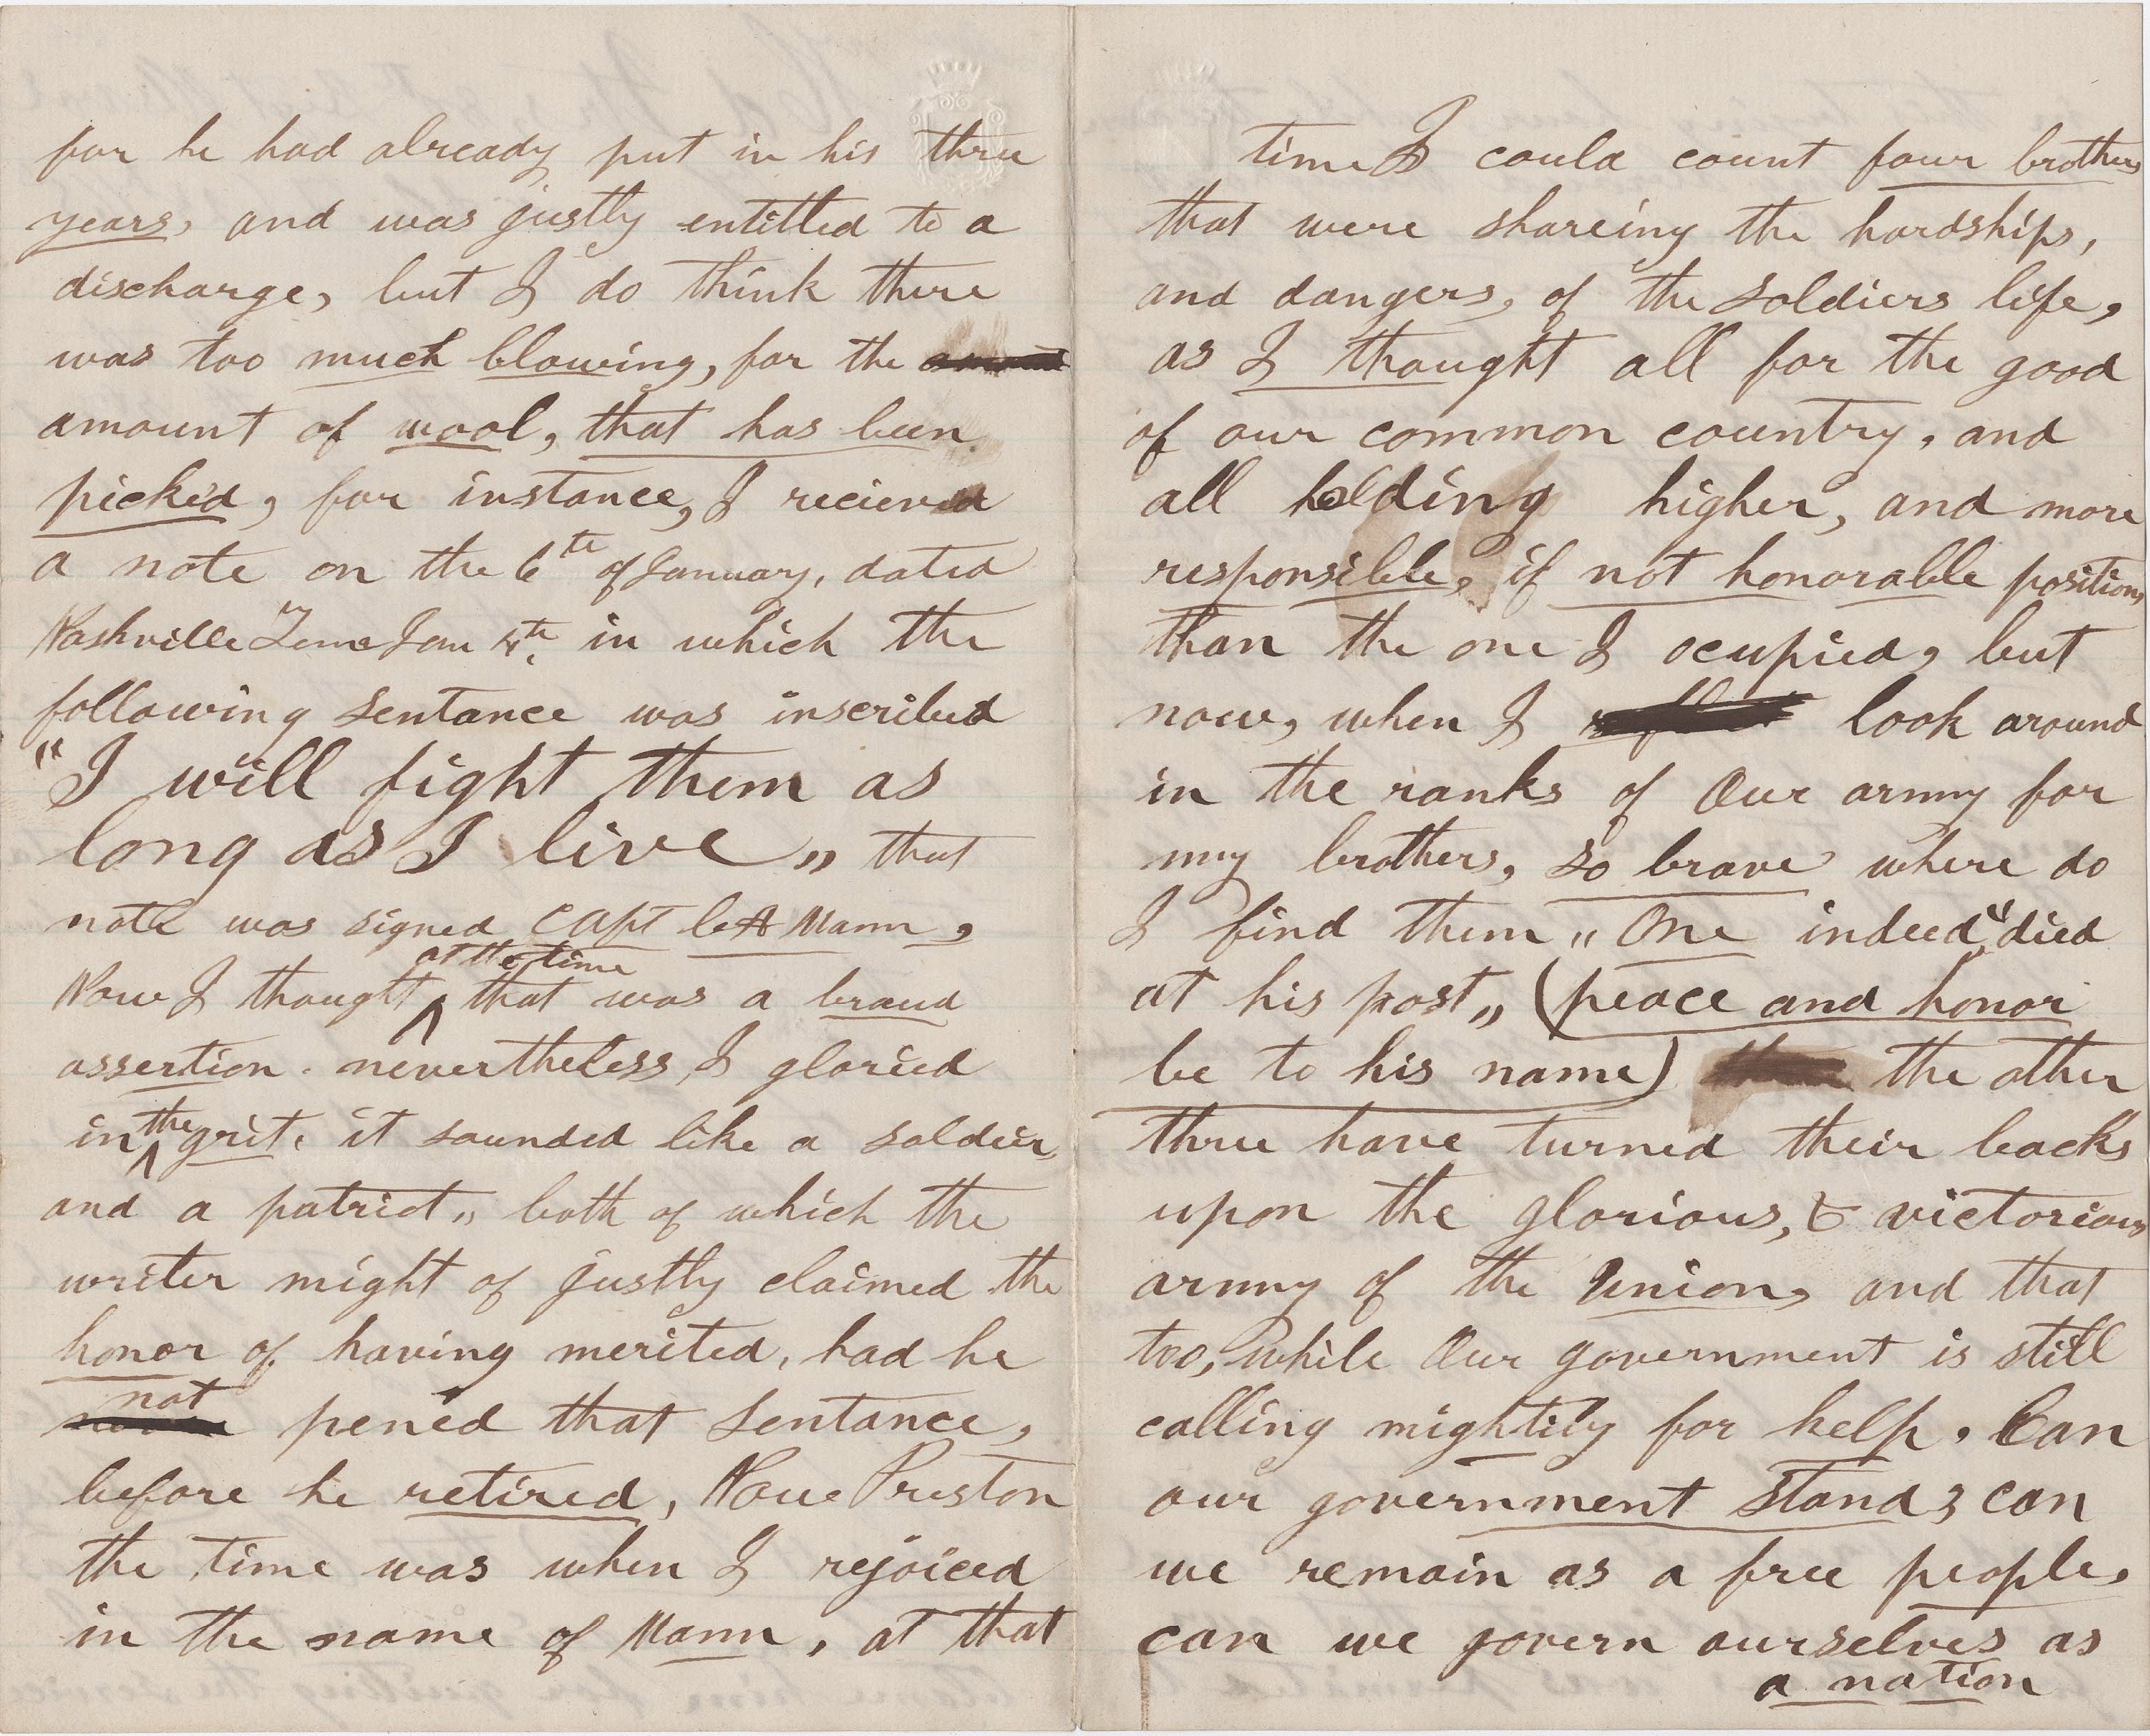 for he had already put in his three
years, and was justly entitled to a
discharge, but I do think there
was too much blowing, for the
amount of wool, that has been
picked, for instance, I recieved
a note on the 6th of January, dated
Nashville Tenn Jan 4th. in which the
following sentance was inscribed
"I will fight them as
long as I live" that
note was signed Capt Mann,
at the time
Now I thought that was a braud
assertion. nevertheless, I gloried
in the grit, it sounded like a soldier,
and a patriot" both of which the
writer might of justly claimed the
honor of having merited, had he
not
pened that sentance,
before he retired, Now Preston
the time was when I rejoiced
in the name of Mann, at that
time I could count four brothers
that were shareing the hardships,
and dangers, of the soldiers life,
as I thought all for the good
of our common country, and
all holding higher, and more
responsible, if not honorable positions
than the one I ocupied, but
now, when I look around
in the ranks of Our army for
my brothers, so brave where do
I find them" One indeed "died
at his post" (peace and honor
be to his name) the other
three have turned their backs
upon the glorious, & victorious
army of the Union, and that
too, while Our government is still
calling mightily for help. Can
our government stand, can
we remain as a free people,
can we govern ourselves as
a nation